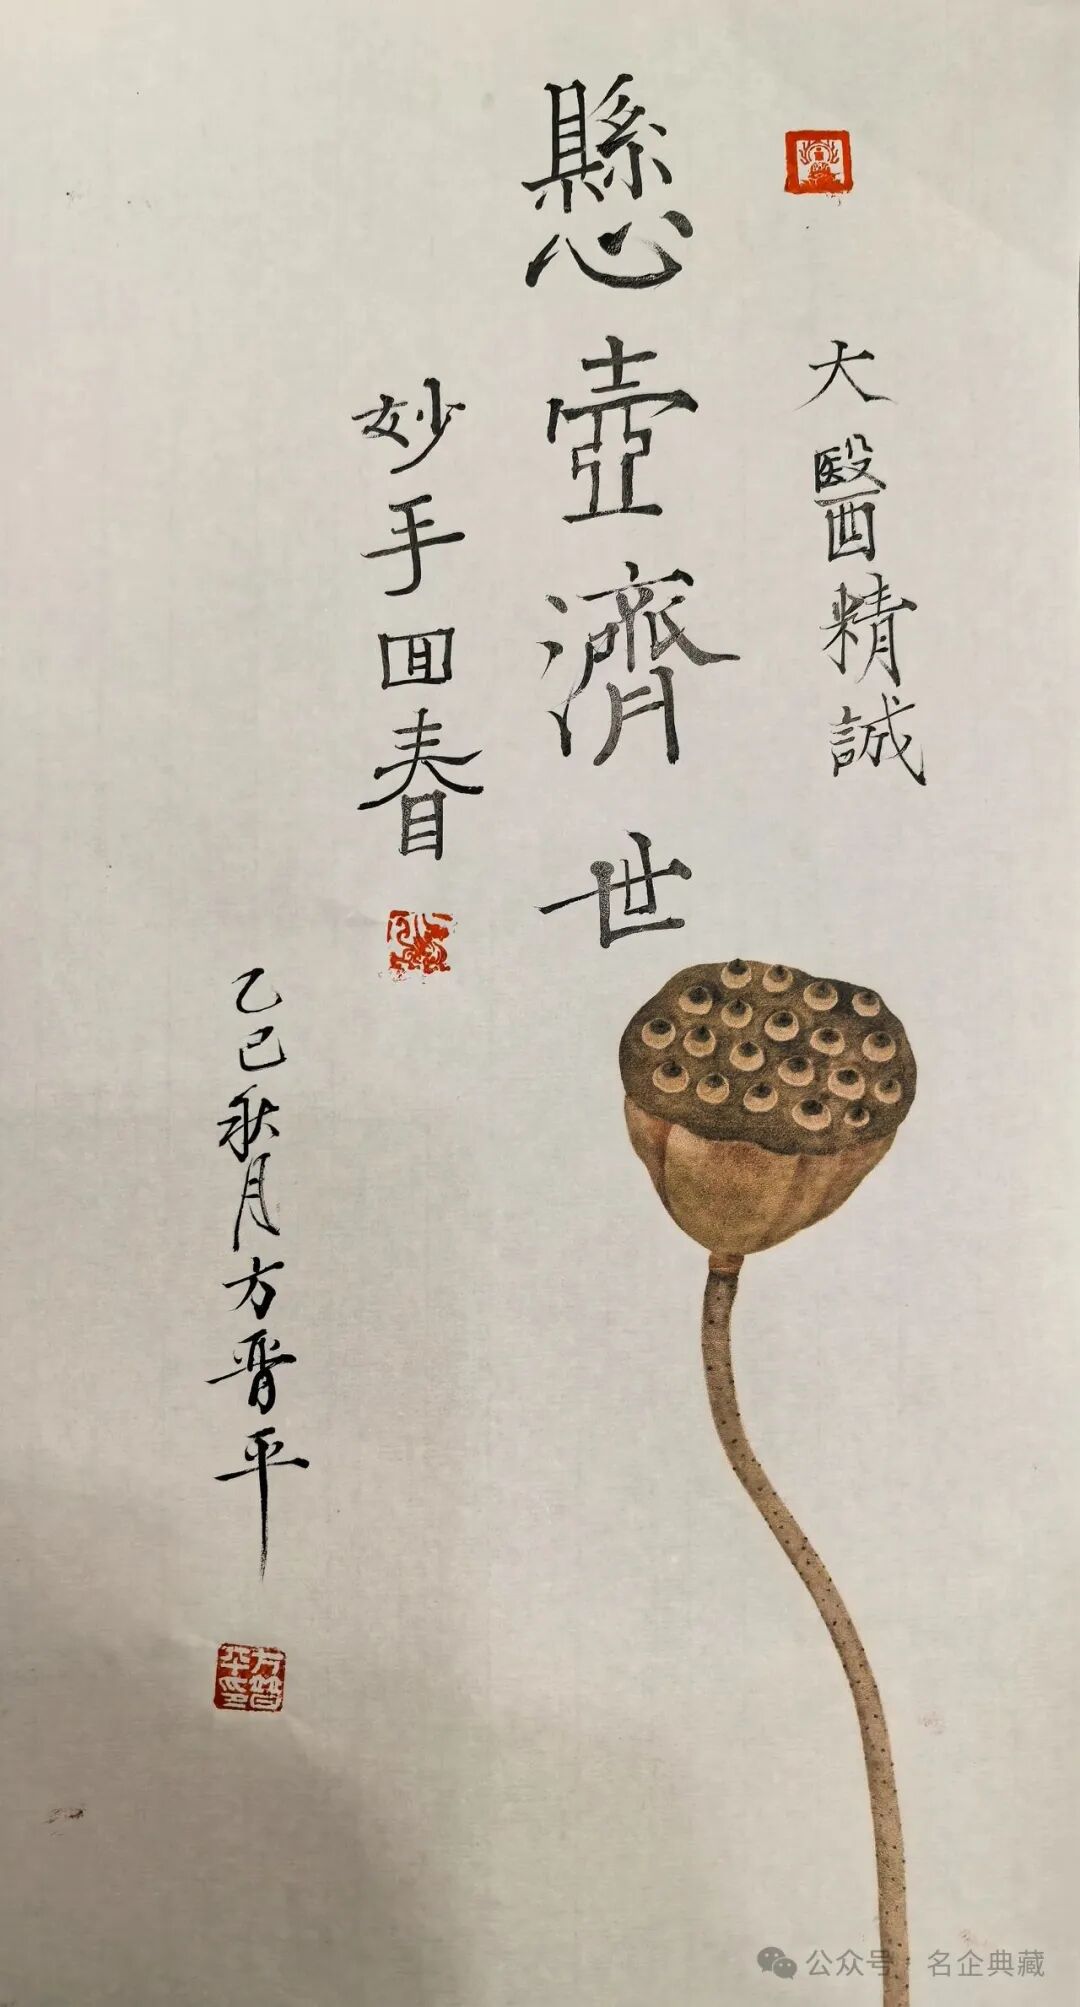 大醫精誠
懸壺濟世
妙手回春
乙巳秋月方晋平
方晋平印
公众号 名企典藏